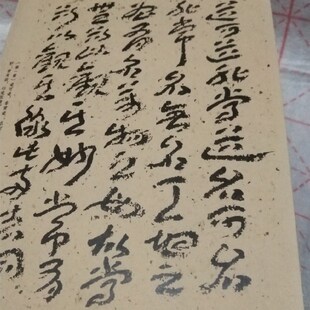 道可道非常道名可名
非常名無名天地之
始有名萬物之母故常
無欲以觀其妙常有
欲以觀其徼此兩者同